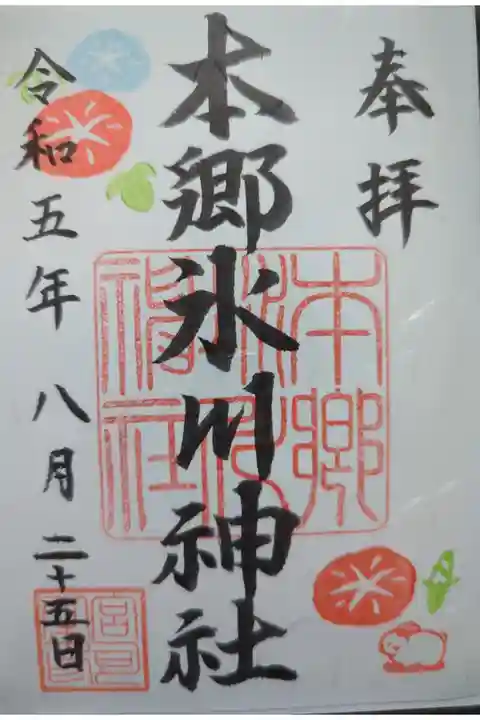 奉拝
本郷氷川神社
令和五年 八月二十五日
本郷
氷川
神社